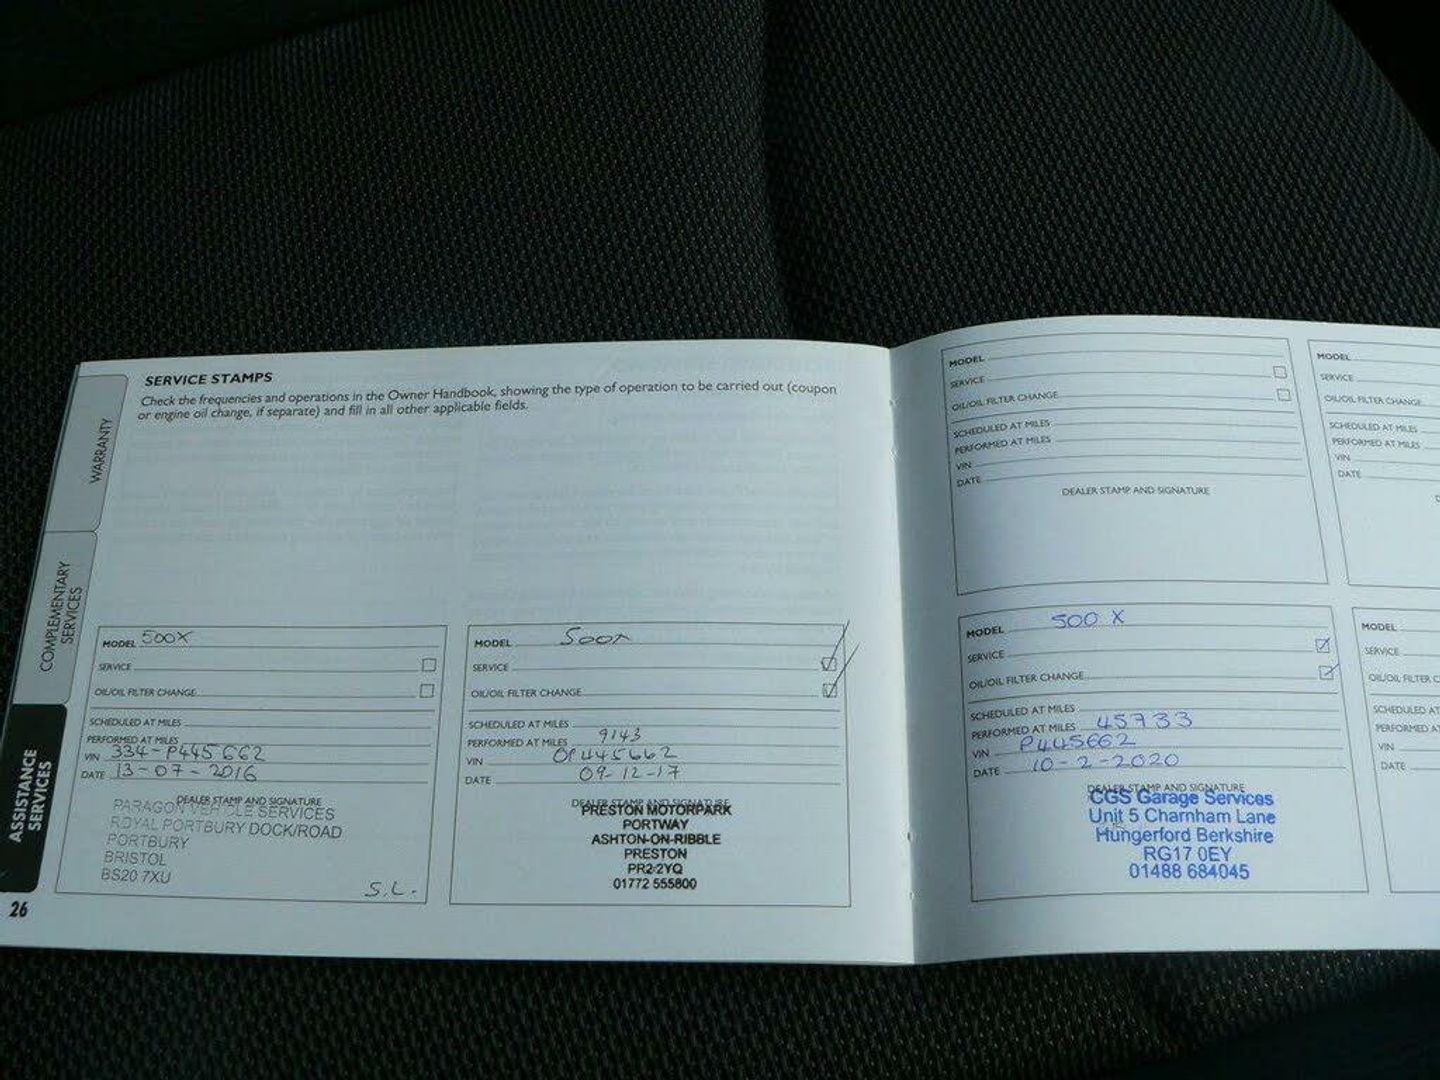 SERVICE STAMPS
Check the frequencies and operations in the Owner Handbook, showing the type of operation to be carried out (coupon
or engine oil change, if separate) and fill in all other applicable fields.
WARRANTY
COMPLEMENTARY
SERVICES
ASSISTANCE
SERVICES
26
MODEL 500X
SERVICE
OIL/OIL FILTER CHANGE
SCHEDULED AT MILES
PERFORMED AT MILES
VIN 334-P445662
DATE 13-07-2016
DEALER STAMP AND SIGNATURE
PARAGON VEHICLE SERVICES
ROYAL PORTBURY DOCK/ROAD
PORTBURY
BRISTOL
BS20 7XU
S.L.
MODEL 500X
SERVICE
OIL/OIL FILTER CHANGE
SCHEDULED AT MILES
PERFORMED AT MILES 9143
VIN 0P445662
DATE 09-12-17
DEALER STAMP AND SIGNATURE
PRESTON MOTORPARK
PORTWAY
ASHTON-ON-RIBBLE
PRESTON
PR2 2YQ
01772 555800
MODEL
SERVICE
OIL/OIL FILTER CHANGE
SCHEDULED AT MILES
PERFORMED AT MILES
VIN
DATE
DEALER STAMP AND SIGNATURE
MODEL 500 X
SERVICE
OIL/OIL FILTER CHANGE
SCHEDULED AT MILES
PERFORMED AT MILES 45733
VIN P445662
DATE 10-2-2020
DEALER STAMP AND SIGNATURE
CGS Garage Services
Unit 5 Charnham Lane
Hungerford Berkshire
RG17 0EY
01488 684045
MODEL
SERVICE
OIL/OIL FILTER CHANGE
SCHEDULED AT MILES
PERFORMED AT MILES
VIN
DATE
MODEL
SERVICE
OIL/OIL FILTER C
SCHEDULED AT
PERFORMED AT
VIN
DATE